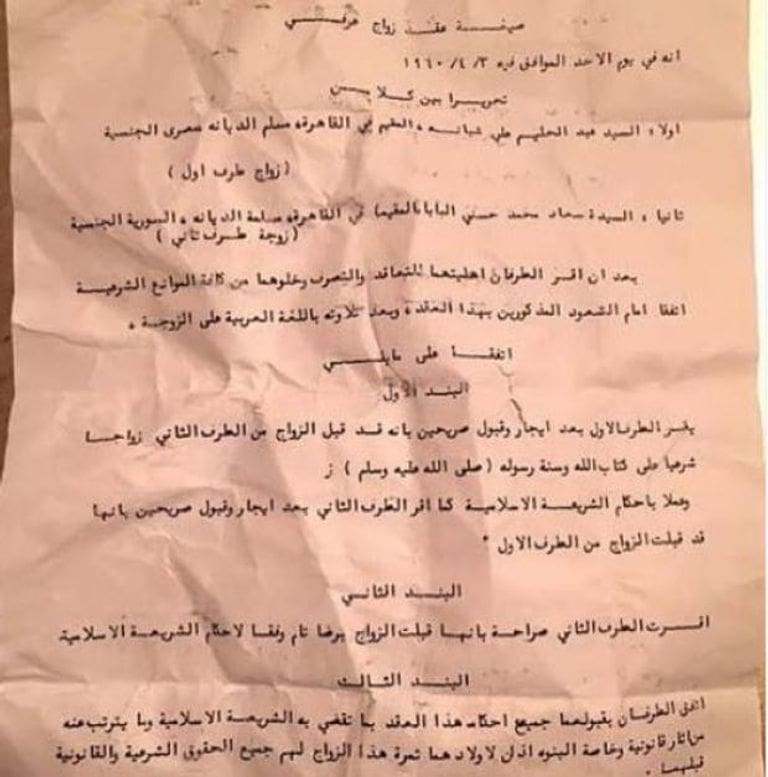 صيغسة عقد زواج عرفسي
انه في يوم الاحد الموافق فيه ٣/ ٤/ ١٩٦٠
تحريرا بين كلا من
اولا ، السيد عبد الحليم علي شبانه ، المقيم في القاهره مسلم الديانه مصرى الجنسية
( زواج طرف اول )
ثانيا ، السيدة سعاد محمد حسني البابا المقيمه في القاهره مسلمة الديانه ، السورية الجنسية
( زوجة طرف ثاني )
بعد ان اقر الطرفان اهليتهما للتعاقد والتصرف وخلوهما من كافة الموانع الشرعية
اتفقا امام الشهود المذكورين بهذا العقد ، وبعد تلاوته باللغة العربية على الزوجة ،
اتفقا على مايلي
البند الاول
يقر الطرف الاول بعد ايجار وقبول صريحين بانه قد قبل الزواج من الطرف الثاني زواجا
شرعيا على كتاب الله وسنة رسوله ( صلى الله عليه وسلم ) ز
وعملا باحكام الشريعة الاسلامية كما اقر الطرف الثاني بعد ايجار وقبول صريحين بانها
قد قبلت الزواج من الطرف الاول •
البند الثاني
اقرت الطرف الثاني صراحة بانها قبلت الزواج برضا تام وفقا لاحكام الشريعة الاسلامية
البند الثالث
اتفق الطرفان بقبولهما جميع احكام هذا العقد بما تقضي به الشريعة الاسلامية وما يترتب عنه
من اثار قانونية وخاصة البنوه اذ ان لاولادهما ثمرة هذا الزواج لهم جميع الحقوق الشرعية والقانونية
قبلهما •